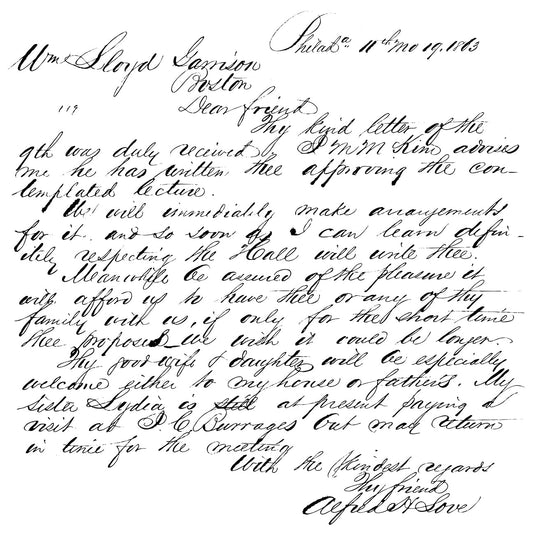 Philad.a 11th Mo 19. 1863
Wm Lloyd Garrison
Boston
119
Dear friend
Thy kind letter of the
9th was duly received. J M McKim advises
me he has written thee approving the con-
templated lecture.
We will immediately make arrangements
for it and so soon as I can learn defin-
itely respecting the Hall will write thee.
Meanwhile be assured of the pleasure it
will afford us to have thee or any of thy
family with us, if only for the short time
thee proposes we wish it could be longer.
Thy good wife & daughter will be especially
welcome either to my house or father's. My
sister Lydia is still at present paying a
visit at J. C Burrages but may return
in time for the meeting
With the kindest regards
Thy friend
Alfred H Love